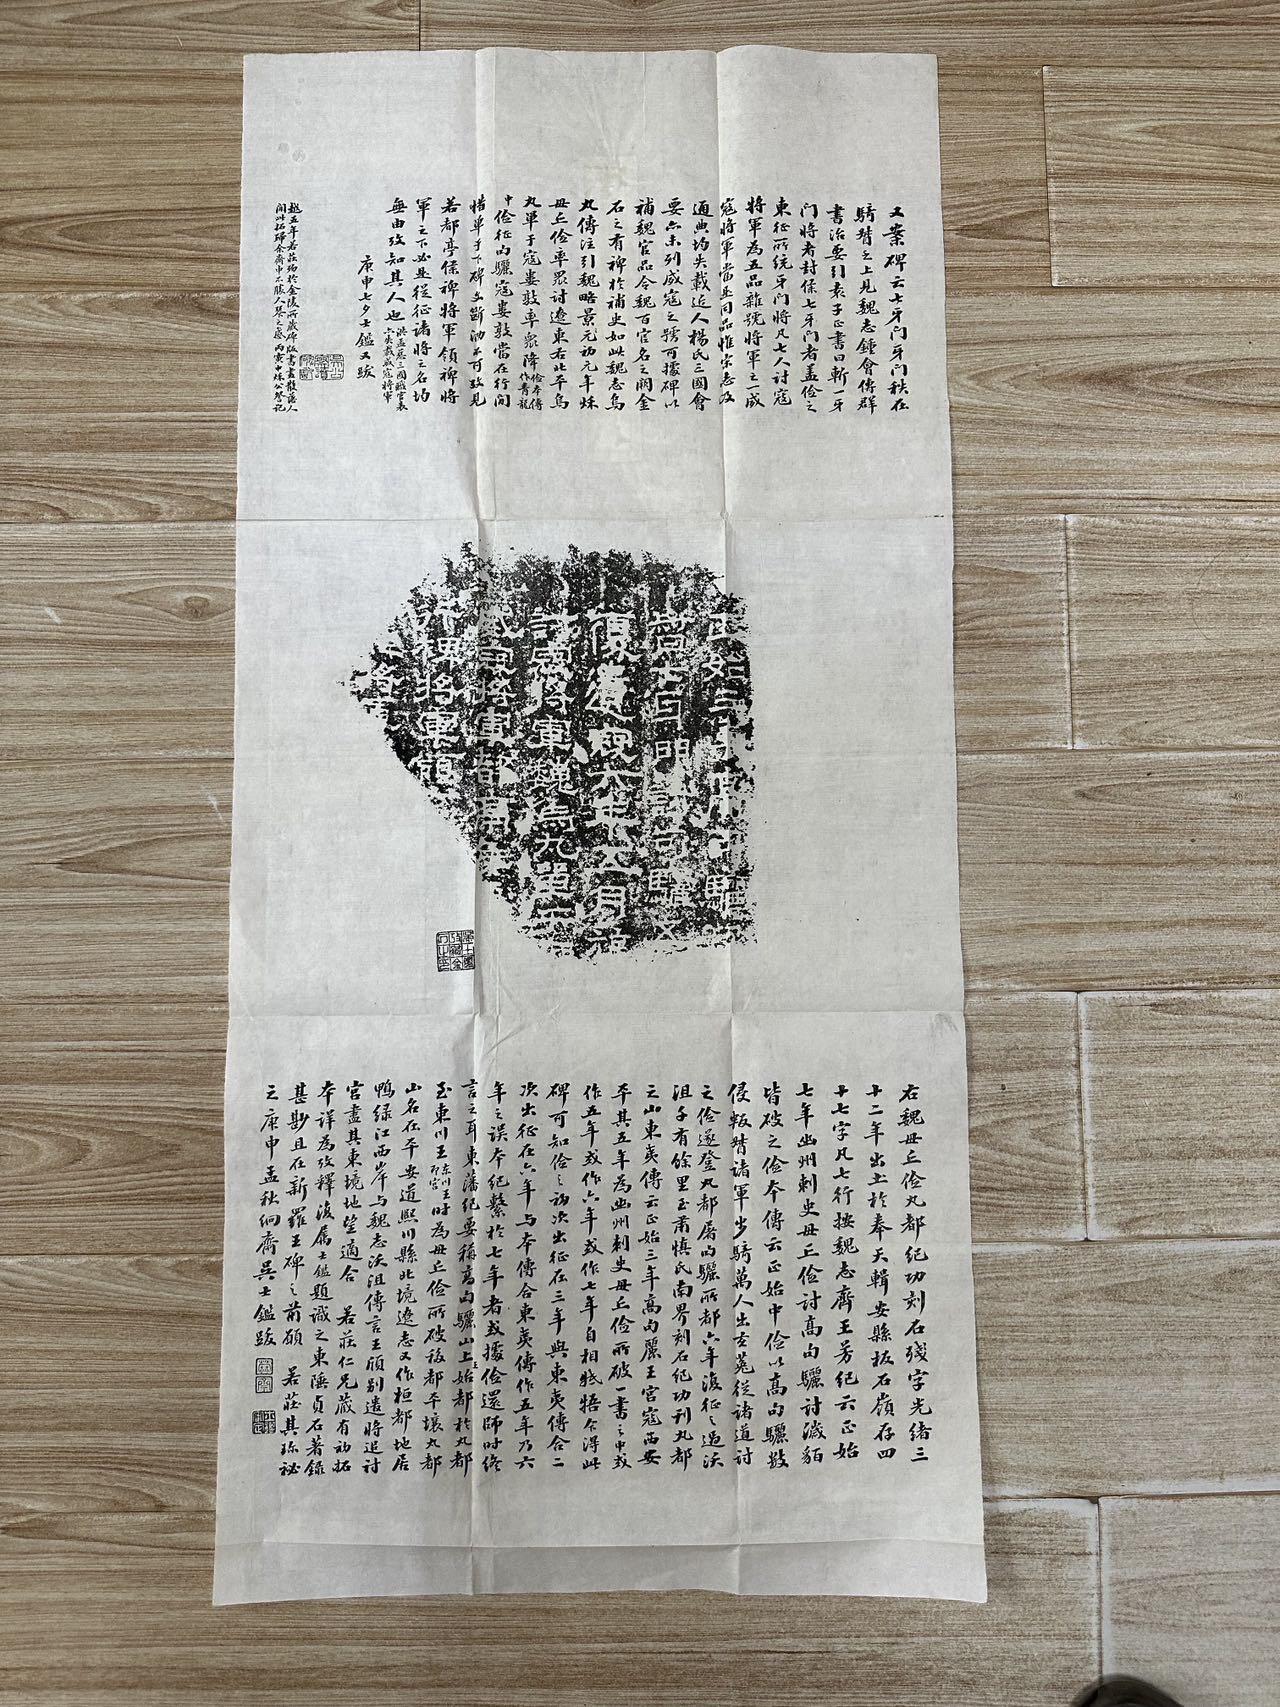 又案碑云七牙門牙門秩在
騎督之上見魏志鍾會傳群
書治要引袁子正書曰斬一牙
門將者封侯七牙門者蓋儉之
東征所統牙門將凡七人討寇
將軍為五品雜號將軍之一威
寇將軍當是同品惟宋志及
通典均失載近人楊氏三國會
要亦未列威寇之號可據碑以
補魏官品令魏百官名之闕金
石之有裨於補史如此魏志烏
丸傳注引魏略景元初元年秌
毋丘儉率眾討遼東右北平烏
丸單于寇婁敦率眾降儉本傳作青龍
中儉征句驪寇婁敦當在行間
惜單于下碑文斷泐不可攷見
若都亭侯裨將軍領裨將
軍之下必是從征諸將之名均
無由攷知其人也洪孟慈三國職官表亦失載威寇將軍
庚申七夕士鑑又跋
越五年若莊歿於金陵所藏碑版書畫散落人
間此拓歸余齋中不勝人琴之感丙寅中秌公詧記
正始三年高句驪
督七牙門討句驪五
復遣寇六年五月旋
討寇將軍魏烏丸單于
威寇將軍都亭侯
行裨將軍領
裨將軍
右魏毋丘儉丸都紀功刻石殘字光緒三
十二年出土於奉天輯安縣板石嶺存四
十七字凡七行按魏志齊王芳紀云正始
七年幽州刺史毋丘儉討高句驪討濊貊
皆破之儉本傳云正始中儉以高句驪數
侵叛督諸軍步騎萬人出玄菟從諸道討
之儉遂登丸都屠句驪所都六年復征之過沃
沮千有餘里至肅慎氏南界刻石紀功刊丸都
之山東夷傳云正始三年高句麗王宮寇西安
平其五年為幽州刺史毋丘儉所破一書之中或
作五年或作六年或作七年自相牴牾今得此
碑可知儉之初次出征在三年與東夷傳合二
次出征在六年與本傳合東夷傳作五年乃六
年之誤本紀繫於七年者或據儉還師時終
言之耳東藩紀要稱高句驪山上王始都於丸都
至東川王東川王即宮時為毋丘儉所破移都平壤丸都
山名在平安道熙川縣北境遼志又作桓都地居
鴨綠江西岸與魏志沃沮傳言王頎別遣將追討
宮盡其東境地望適合 若莊仁兄藏有初拓
本詳為攷釋復屬士鑑題識之東陲貞石著錄
甚尠且在新羅王碑之前願 若莊其珎祕
之庚申孟秋絅齋吳士鑑跋